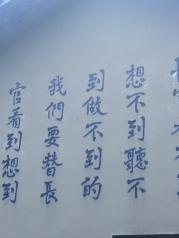 想不到聽不
到做不到的
我們要替長
官看到想到